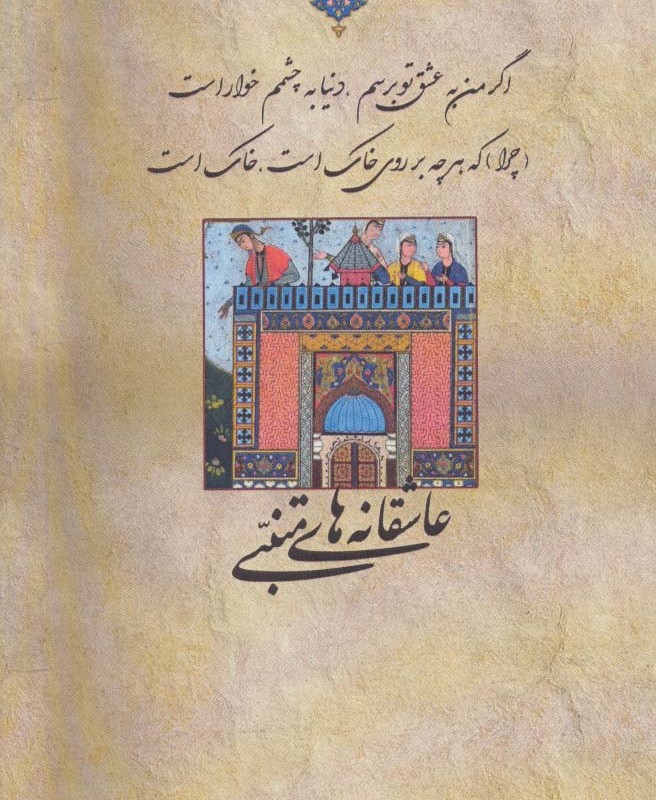 اگر من به عشق تو برسم ، دنیا به چشمم خوار است
(چرا) که هر چه بر روی خاک است ، خاک است
عاشقانه های متنبّی